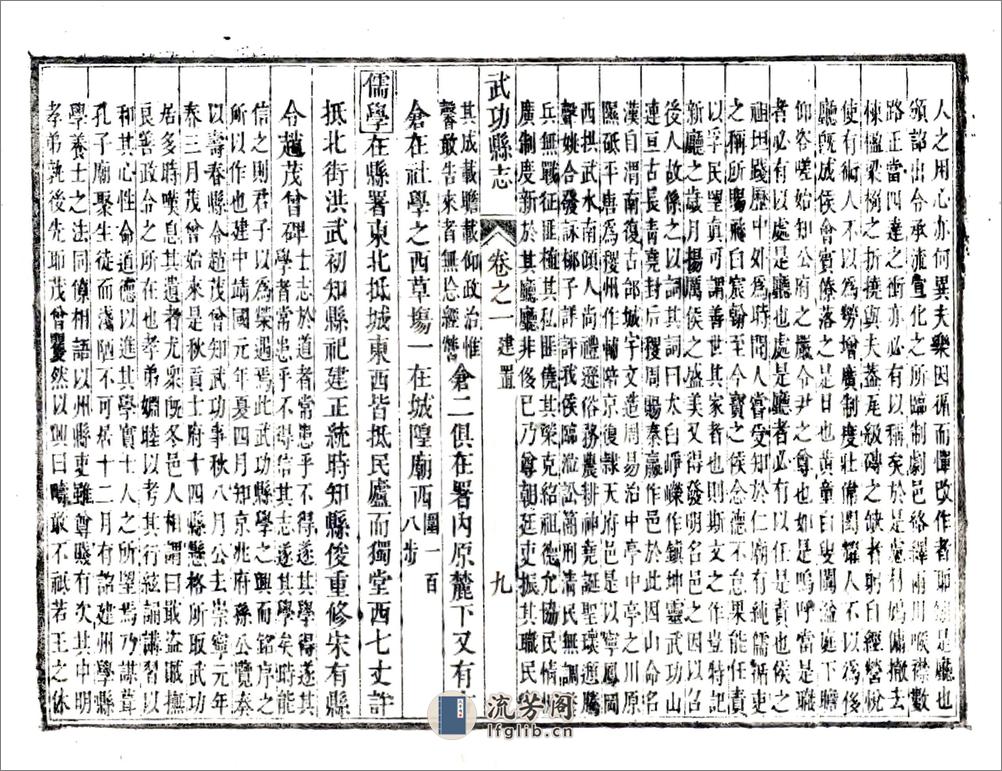 人之用心亦何異夫樂因循而憚改作者耶矧是廳也
頒詔出令承流宣化之所臨制劇邑襟帶兩川喉襟數
路正當四達之衝亦必有以稱矣於是庀材鳩傭撤去
棟楹梁桷之折撓與夫蓋瓦級磚之缺者躬自經營悅
使有術人不以為勞增廣制度壯偉閎耀人不以為後
廳旣成侯會賓僚落之是日也黃童白叟闐溢庭下瞻
仰咨嗟始知公府之嚴令尹之尊也如是嗚呼當是職
者必有以處是廳也處是廳者必有以任是責也侯之
祖坦踐歷中外為時聞人嘗受知於仁廟有純儒循吏
之稱所賜宸翰至今寶之侯念德不怠果能任責
以孚民望真可謂善世其家者也則斯文之作豈特記
新廳之歲月揚厲侯之盛美又得以
後人故係之以詩其詞曰太白崢嶸作鎮坤靈武功山
連亘古長青堯封后稷周賜秦嬴作邑於此因山命名
漢自渭南復古部城宇文造周易治中亭中亭之川原
隰砥平唐為稷州作輔京左又復隸天邑是以寧鳳岡
西拱武水南傾人尚禮遜俗務農耕神堯誕聖環邇騰
聲姚合發詠柳子詳評我侯臨涖訟簡刑清民無調
兵無戰征匪植其私匪僥其榮克紹祖德允協民情
廣制度新於其廳廳非侯已乃尊朝廷吏振其職民
武功縣志
卷之一 建置 九
其成載瞻載仰政治惟
馨敢告來者無忝經營倉二俱在署内原麓下又有
倉在社學之西草場一在城隍廟西圍一百八步
儒學在縣署東北抵城東西皆抵民廬而獨堂西七丈許
抵北街洪武初知縣祀建正統時知縣俊重修宋有縣
令趙茂曾碑士志於道者常患乎不得遂其學得遂其
學者常患乎不得信其志遂其學矣時能
信之則君子以為榮遇焉此武功縣學之興而銘序之
所以作也建中靖國元年夏四月知京兆府孫公覽奏
以壽春縣令趙茂曾知武功事秋八月公去崇寧元年
春三月茂曾始來是秋貢士府十四縣懸格所取武功
居多時嘆息其遺者尤衆旣冬邑人相謂曰敢盜譏撫
良善政令之所在也孝弟婣睦以考其行絃誦講習以
和其心性命道德以進其學實士人之所望焉乃謀葺
孔子廟聚生徒而淺陋不可居十二月有詔建州縣
學養士之法同僚相語以州縣吏雖尊賤有次其申明
孝弟孰後先耶茂曾矍然以興曰疇敢不祗若王之休
流芳阁
lfglib.cn